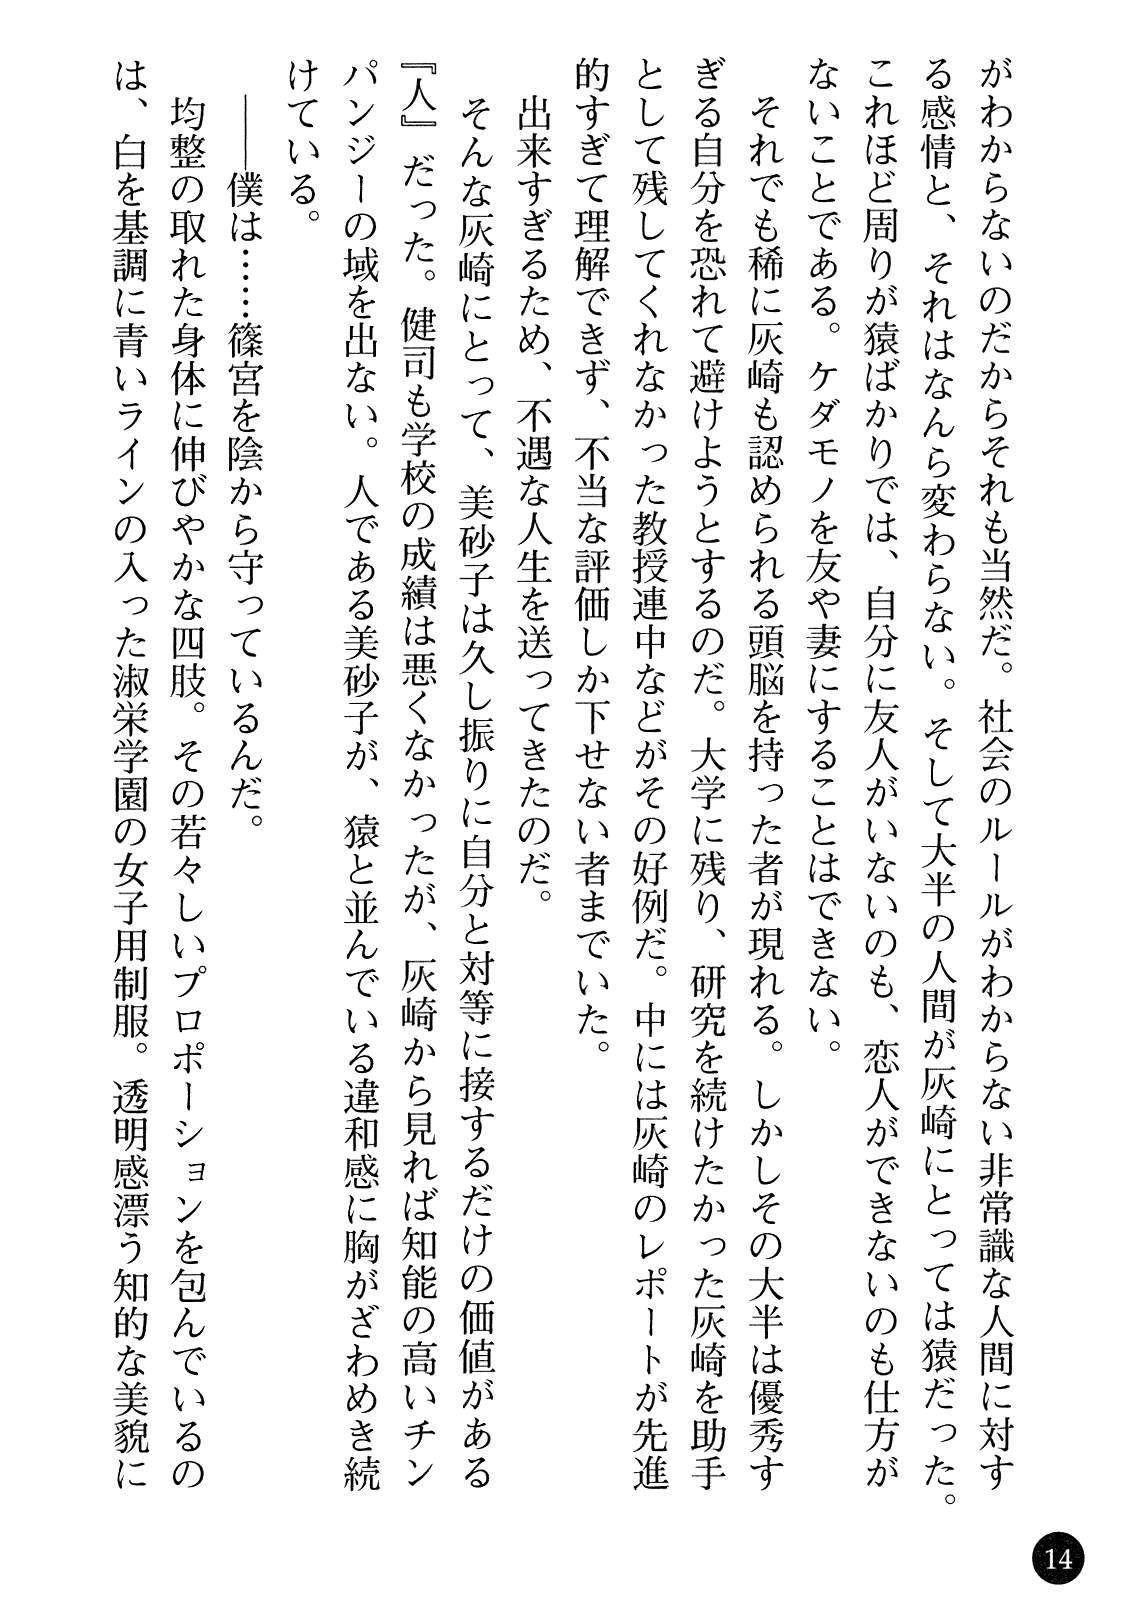 がわからないのだからそれも当然だ。社会のルールがわからない非常識な人間に対す
る感情と、それはなんら変わらない。そして大半の人間が灰崎にとっては猿だった。
これほど周りが猿ばかりでは、自分に友人がいないのも、恋人ができないのも仕方が
ないことである。ケダモノを友や妻にすることはできない。
それでも稀に灰崎も認められる頭脳を持った者が現れる。しかしその大半は優秀す
ぎる自分を恐れて避けようとするのだ。大学に残り、研究を続けたかった灰崎を助手
として残してくれなかった教授連中などがその好例だ。中には灰崎のレポートが先進
的すぎて理解できず、不当な評価しか下せない者までいた。
出来すぎるため、不遇な人生を送ってきたのだ。
そんな灰崎にとって、美砂子は久し振りに自分と対等に接するだけの価値がある
『人』だった。健司も学校の成績は悪くなかったが、灰崎から見れば知能の高いチン
パンジーの域を出ない。人である美砂子が、猿と並んでいる違和感に胸がざわめき続
けている。
――僕は……篠宮を陰から守っているんだ。
均整の取れた身体に伸びやかな四肢。その若々しいプロポーションを包んでいるの
は、白を基調に青いラインの入った淑栄学園の女子用制服。透明感漂う知的な美貌に
14